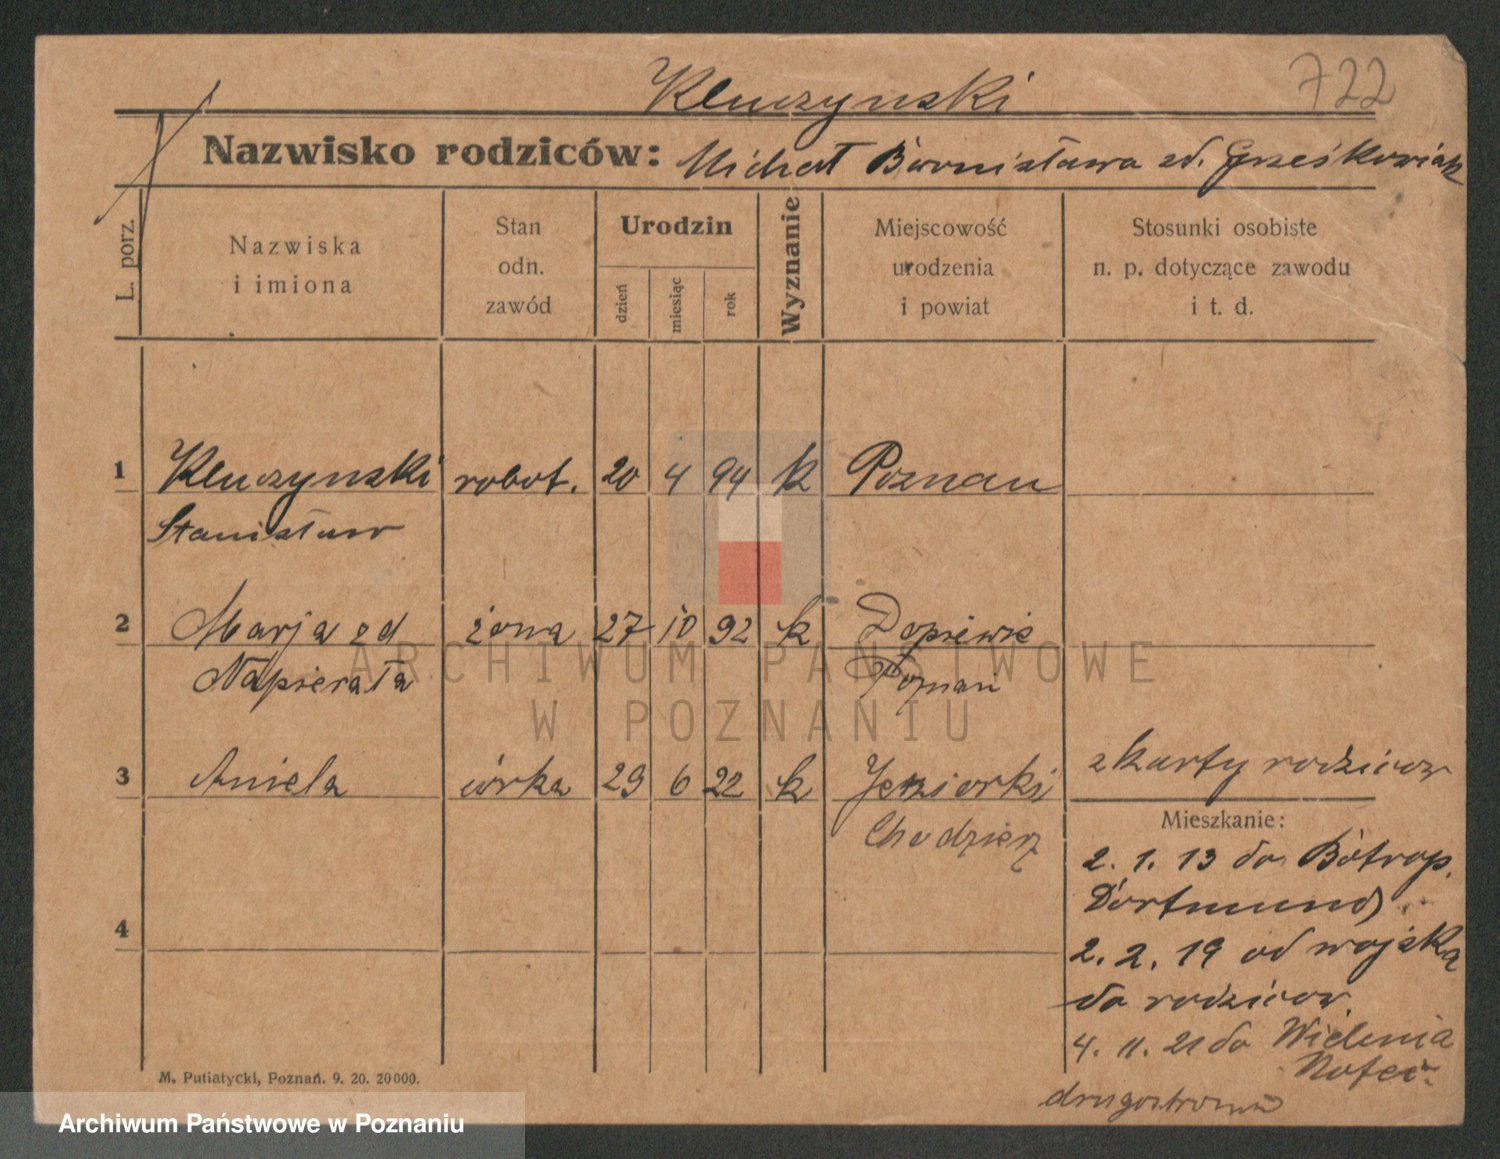 Kluczynski
722
Nazwisko rodziców: Michał Bronisława zd. Grześkowiak
L. porz.
Nazwiska
i imiona
Stan
odn.
zawód
Urodzin
dzień
miesiąc
rok
Wyznanie
Miejscowość
urodzenia
i powiat
Stosunki osobiste
n. p. dotyczące zawodu
i t. d.
1 Kluczynski robot. 20 4 94 k Poznan
Stanisław
2 Marja zd żona 27 10 92 k Dopiewie
Napierała Poznań
3 Aniela córka 29 6 22 k Jeziorki z karty rodziców
Chodzież
Mieszkanie:
2. 1. 13 do Botrop.
Dortmund)
2. 2. 19 od wojska
do rodziców.
4
4. 11. 21 do Wielenia
Notec
drugostronie
M. Putiatycki, Poznań. 9. 20. 20000.
ARCHIWUM PAŃSTWOWE
W POZNANIU
Archiwum Państwowe w Poznaniu